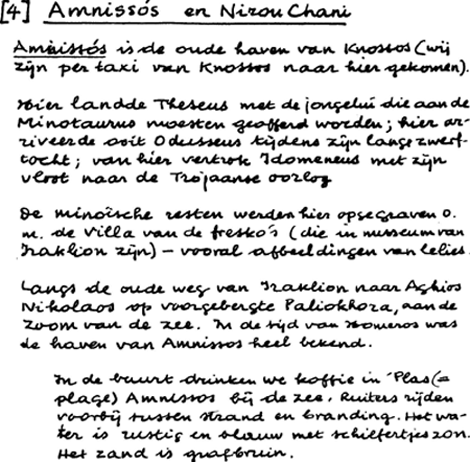 [4] Amnissós en Nirou Chani
Amnissós is de oude haven van Knossos (wij
zijn per taxi van Knossos naar hier gekomen).
Hier landde Theseus met de jongelui die aan de
Minotaurus moesten geofferd worden; hier ar-
riveerde ooit Odusseus tijdens zijn lange zwerf-
tocht; van hier vertrok Idomeneus met zijn
vloot naar de Trojaanse oorlog
De minoïsche resten werden hier opgegraven o.
m. de Villa van de fresko's (die in museum van
Iraklion zijn) – vooral afbeeldingen van lelies.
Langs de oude weg van Iraklion naar Aghios
Nikolaos op voorgebergte Paliokhora, aan de
zoom van de zee. In de tijd van Homeros was
de haven van Amnissos heel bekend.
In de buurt drinken we koffie in 'Plas (=
plage) Amnissos bij de zee. Ruiters rijden
voorbij tussen strand en branding. Het wa-
ter is rustig en blauw met schilfertjes zon.
Het zand is grafbruin.